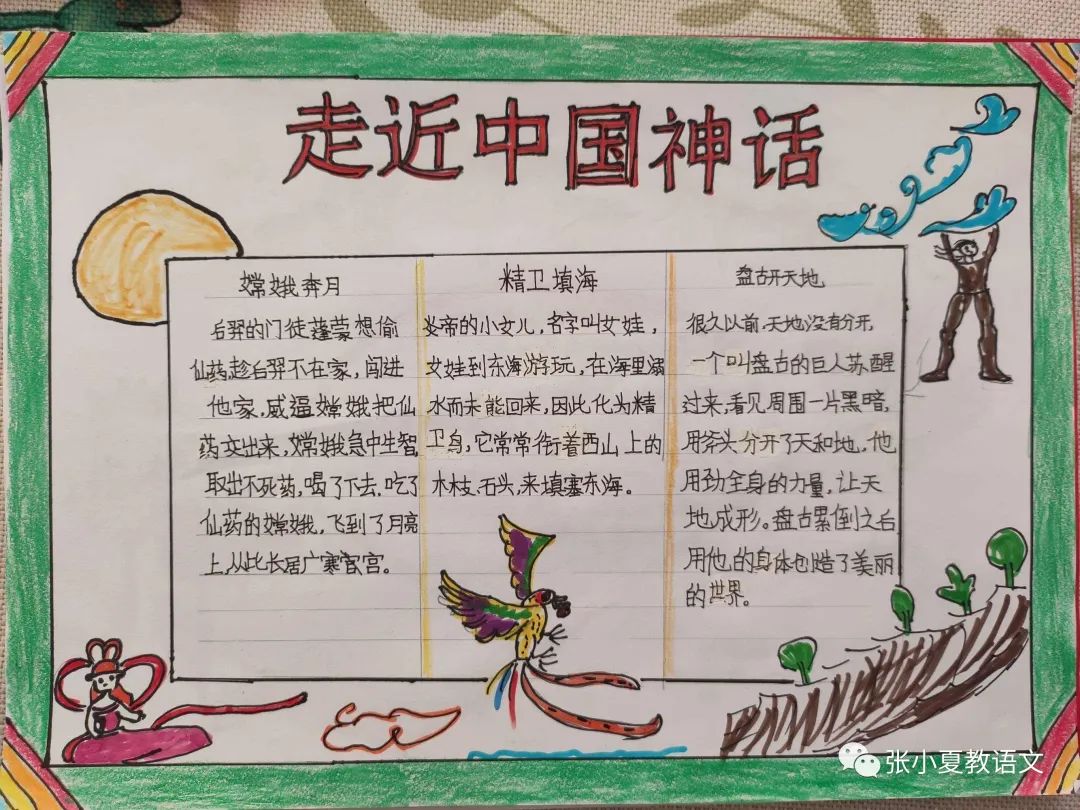 走近中国神话
嫦娥奔月
后羿的门徒蓬蒙想偷
仙药,趁后羿不在家，闯进
他家,威逼嫦娥把仙
药交出来,嫦娥急中生智
取出不死药,喝了下去.吃了
仙药的嫦娥,飞到了月亮
上,从此长居广寒宫。
精卫填海
炎帝的小女儿,名字叫女娃，
女娃到东海游玩,在海里溺
水而未能回来,因此化为精
卫鸟,它常常衔着西山上的
木枝、石头,来填塞东海。
盘古开天地
很久以前,天地没有分开,
一个叫盘古的巨人苏醒
过来,看见周围一片黑暗,
用斧头分开了天和地,他
用劲全身的力量,让天
地成形。盘古累倒之后
用他的身体创造了美丽
的世界。
张小夏教语文